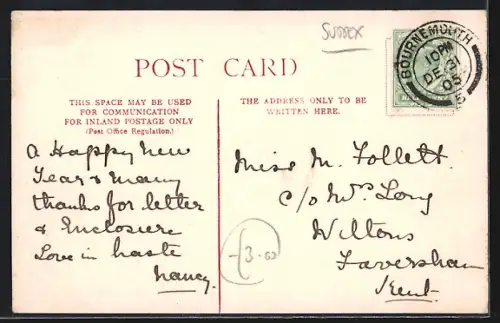 Sussex
POST CARD
THIS SPACE MAY BE USED
FOR COMMUNICATION
FOR INLAND POSTAGE ONLY
(Post Office Regulation.)
A Happy New
Year & many
thanks for letter
& Enclosure
Love in haste
Nancy.
THE ADDRESS ONLY TO BE
WRITTEN HERE.
BOURNEMOUTH
10 PM
DE 31
05
Miss M. Follett.
c/o Mrs Long
Wiltons
Faversham
Kent